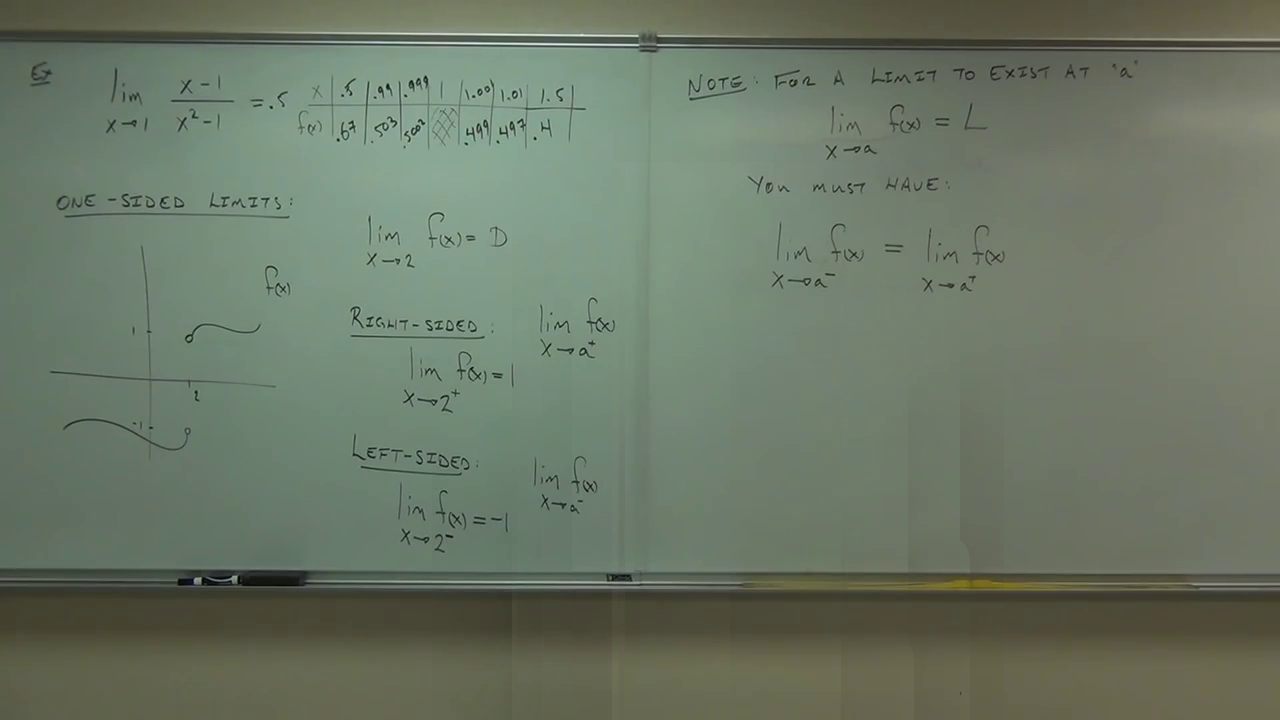 Ex lim x→1 x-1 / x²-1 = .5
x .5 .99 .999 1 1.001 1.01 1.5
f(x) .67 .503 .5002 .499 .497 .4
ONE-SIDED LIMITS:
f(x)
1
2
-1
lim x→2 f(x) = D
RIGHT-SIDED: lim x→a⁺ f(x)
lim x→2⁺ f(x) = 1
LEFT-SIDED: lim x→a⁻ f(x)
lim x→2⁻ f(x) = -1
NOTE: FOR A LIMIT TO EXIST AT "a"
lim x→a f(x) = L
YOU MUST HAVE:
lim x→a⁻ f(x) = lim x→a⁺ f(x)